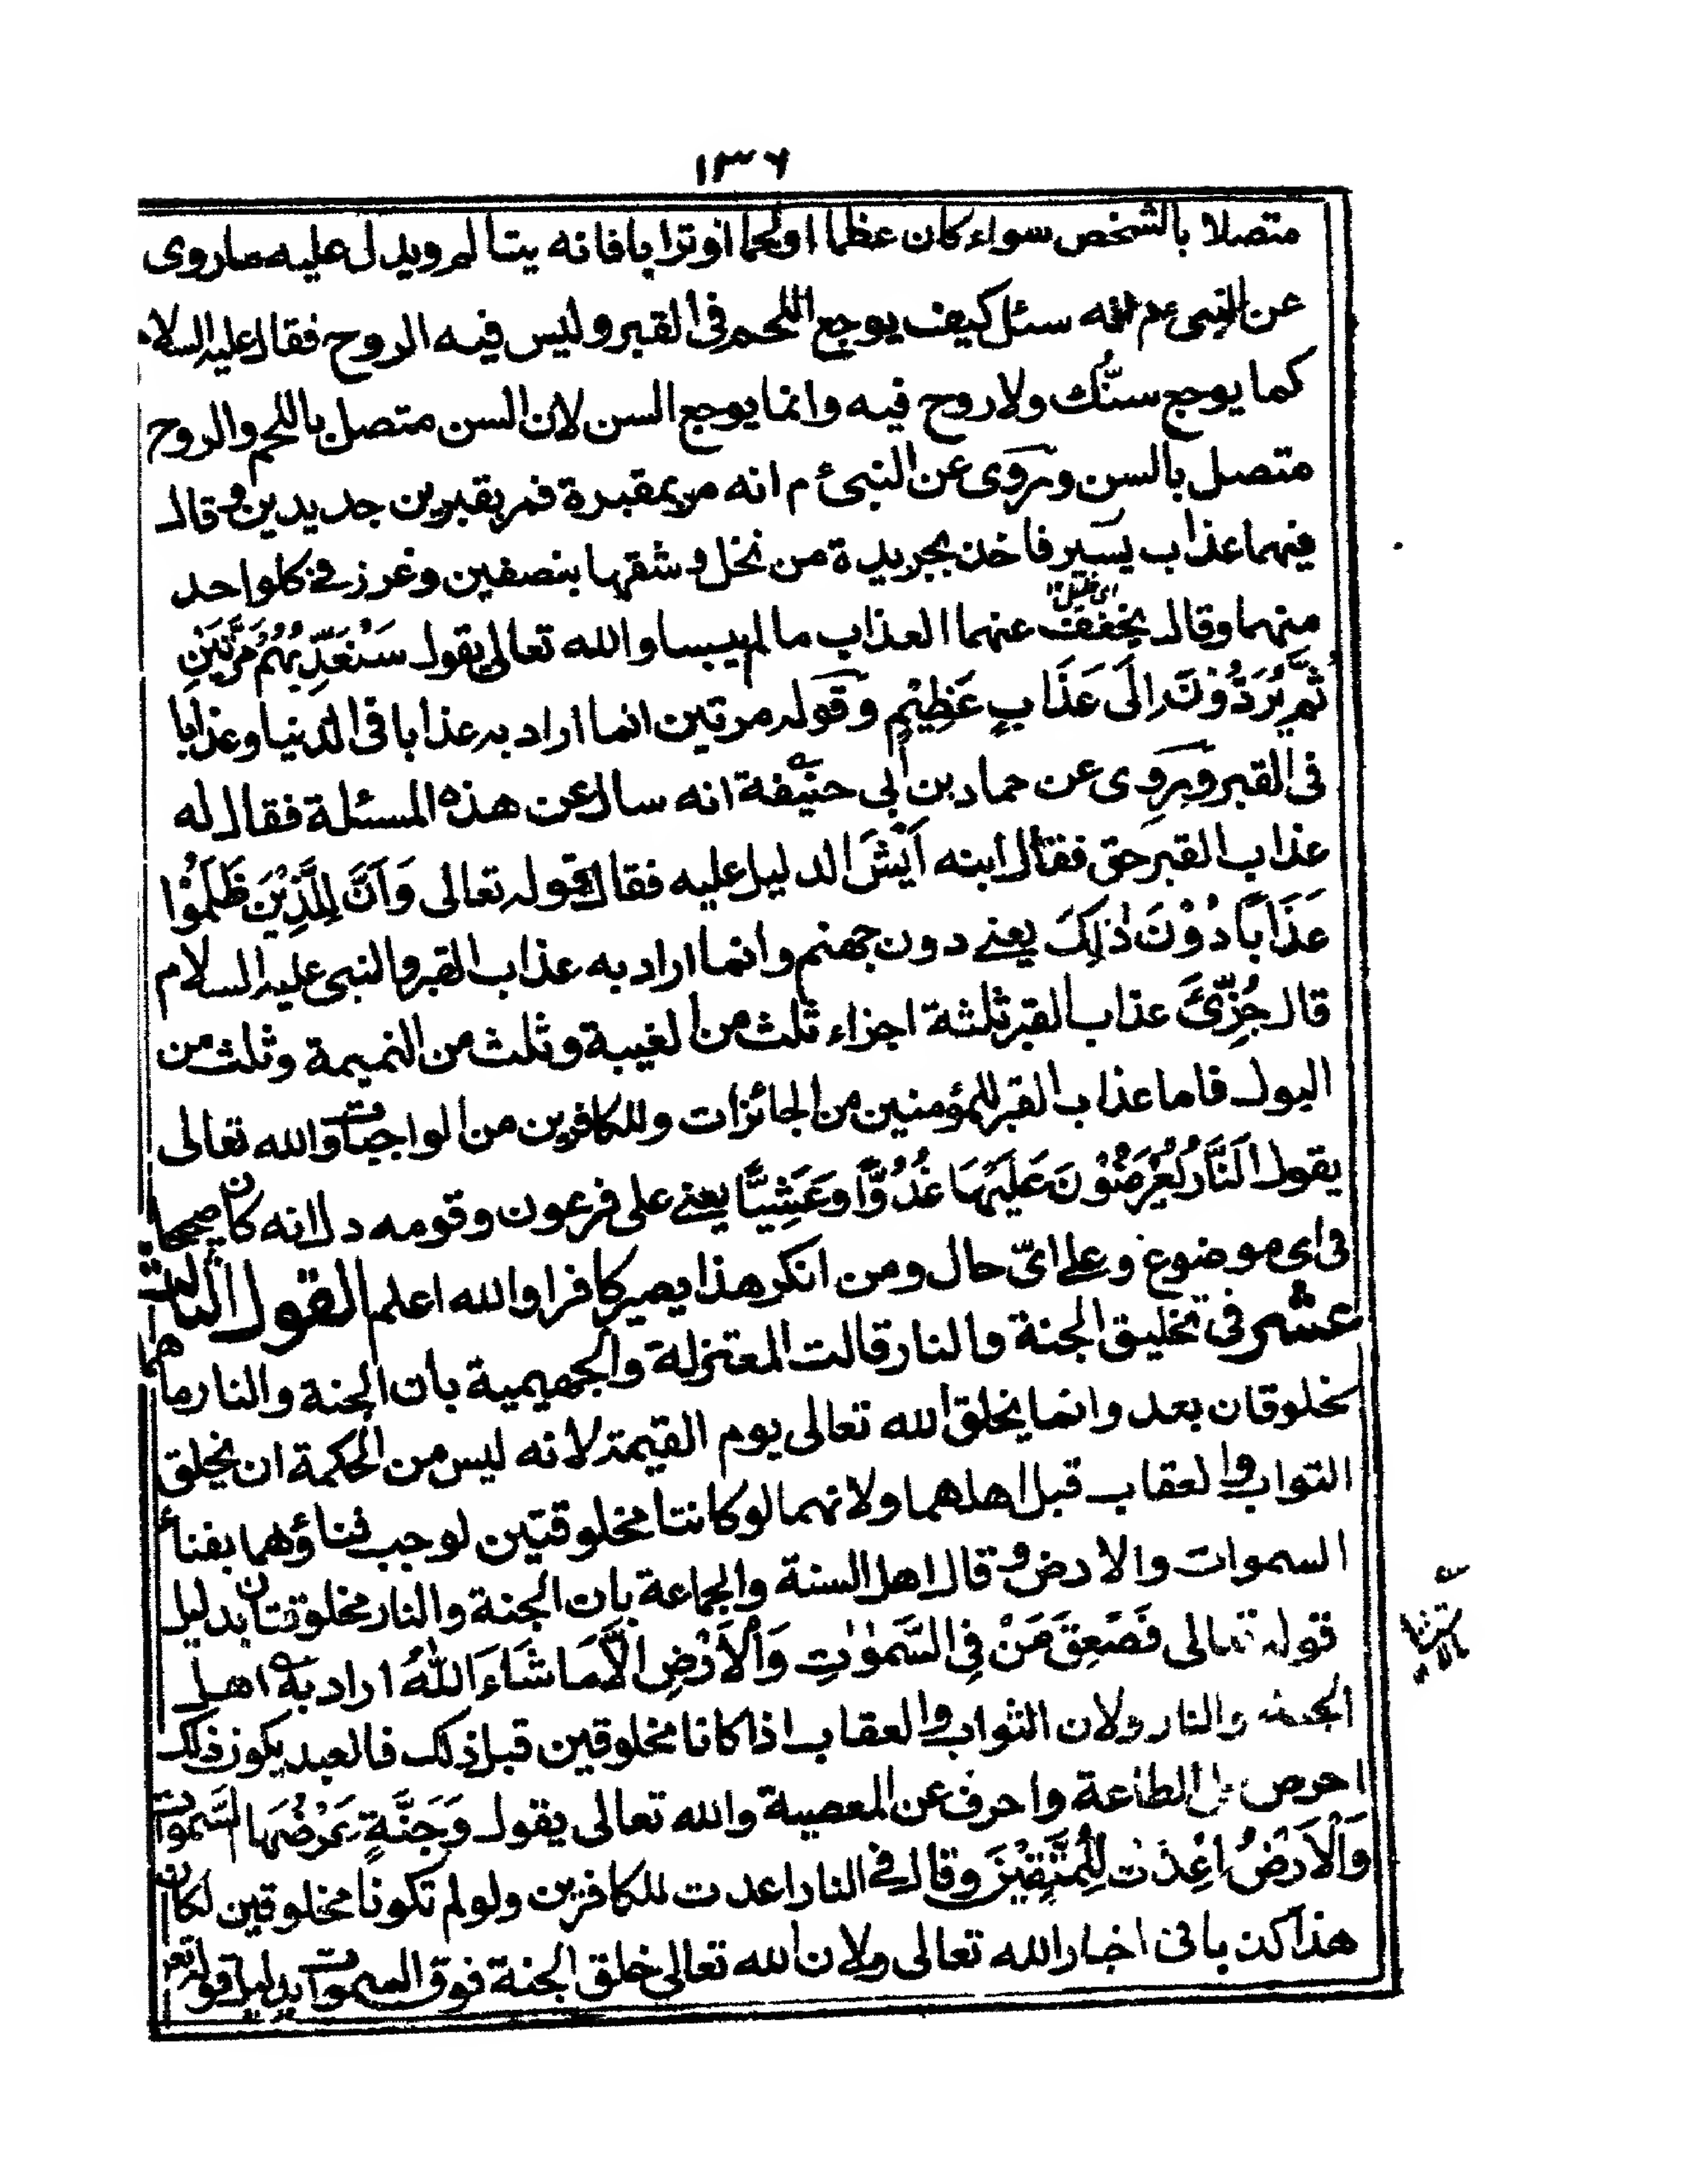 ١٣٦
متصلا بالشخص سواء كان عظما اولحما اوترابا فانه يتالم ويدل عليه ماروى
عن النبى عم انه سئل كيف يوجع اللحم فى القبر وليس فيه الروح فقال عليه السلام
كما يوجع سنّك ولا روح فيه وانما يوجع السن لان السن متصل باللحم والروح
متصل بالسن ومروى عن النبى م انه مر بمقبرة فمر بقبرين جديدين وقال
فيهما عذاب يسير فاخذ بجريدة من نخل وشقها بنصفين وغرز فى كل واحد
منهما وقال يخفف عنهما العذاب مالم ييبسا والله تعالى يقول سَنُعَذِّبُهُمْ مَرَّتَيْنِ
ثُمَّ يُرَدُّوْنَ اِلَى عَذَابٍ عَظِيْمٍ وقوله مرتين انما اراد به عذابا فى الدنيا وعذابا
فى القبر ويروى عن حماد بن ابى حنيفة انه سال عن هذه المسئلة فقال له
عذاب القبر حق فقال ابنه اَيْشَ الدليل عليه فقال قوله تعالى وَاَنَّ لِلَّذِيْنَ ظَلَمُوْا
عَذَابًا دُوْنَ ذٰلِكَ يعنے دون جهنم وانما اراد به عذاب القبر والنبى عليه السلام
قال جُزِّئَ عذاب القبر ثلثة اجزاء ثلث من الغيبة وثلث من النميمة وثلث من
البول فاما عذاب القبر للمؤمنين من الجائزات وللكافرين من الواجبات والله تعالى
يقول اَلنَّارُ يُعْرَضُوْنَ عَلَيْهَا غُدُوًّا وَعَشِيًّا يعنے على فرعون وقومه دل انه كان صحيحا
فى اى موضوع وعلے اىّ حال ومن انكر هذا يصير كافرا والله اعلم القول الثالث
عشر فى تخليق الجنة والنار قالت المعتزلة والجهيمية بان الجنة والنار ماهما
مخلوقان بعد وانما يخلق الله تعالى يوم القيمة لانه ليس من الحكمة ان يخلق
الثواب والعقاب قبل اهلهما ولانهما لو كانتا مخلوقتين لوجب فناؤهما بفناء
السموات والارض وقال اهل السنة والجماعة بان الجنة والنار مخلوقتان بدليل
قوله تعالى فَصَعِقَ مَنْ فِى السَّمٰوٰتِ وَالْاَرْضِ اِلَّا مَا شَاءَ اللّٰهُ اراد به اهل
الجنة والنار ولان الثواب والعقاب اذا كانا مخلوقين قبل ذلك فالعبد يكون ذلك
احرص على الطاعة واحرف عن المعصية والله تعالى يقول وَجَنَّةٍ عَرْضُهَا السَّمٰوٰتُ
وَالْاَرْضُ اُعِدَّتْ لِلْمُتَّقِيْنَ وقال فى النار اعدت للكافرين ولولم تكونا مخلوقين لكان
هذا كذبا فى اخبار الله تعالى ولان الله تعالى خلق الجنة فوق السموات بدليل قوله تع